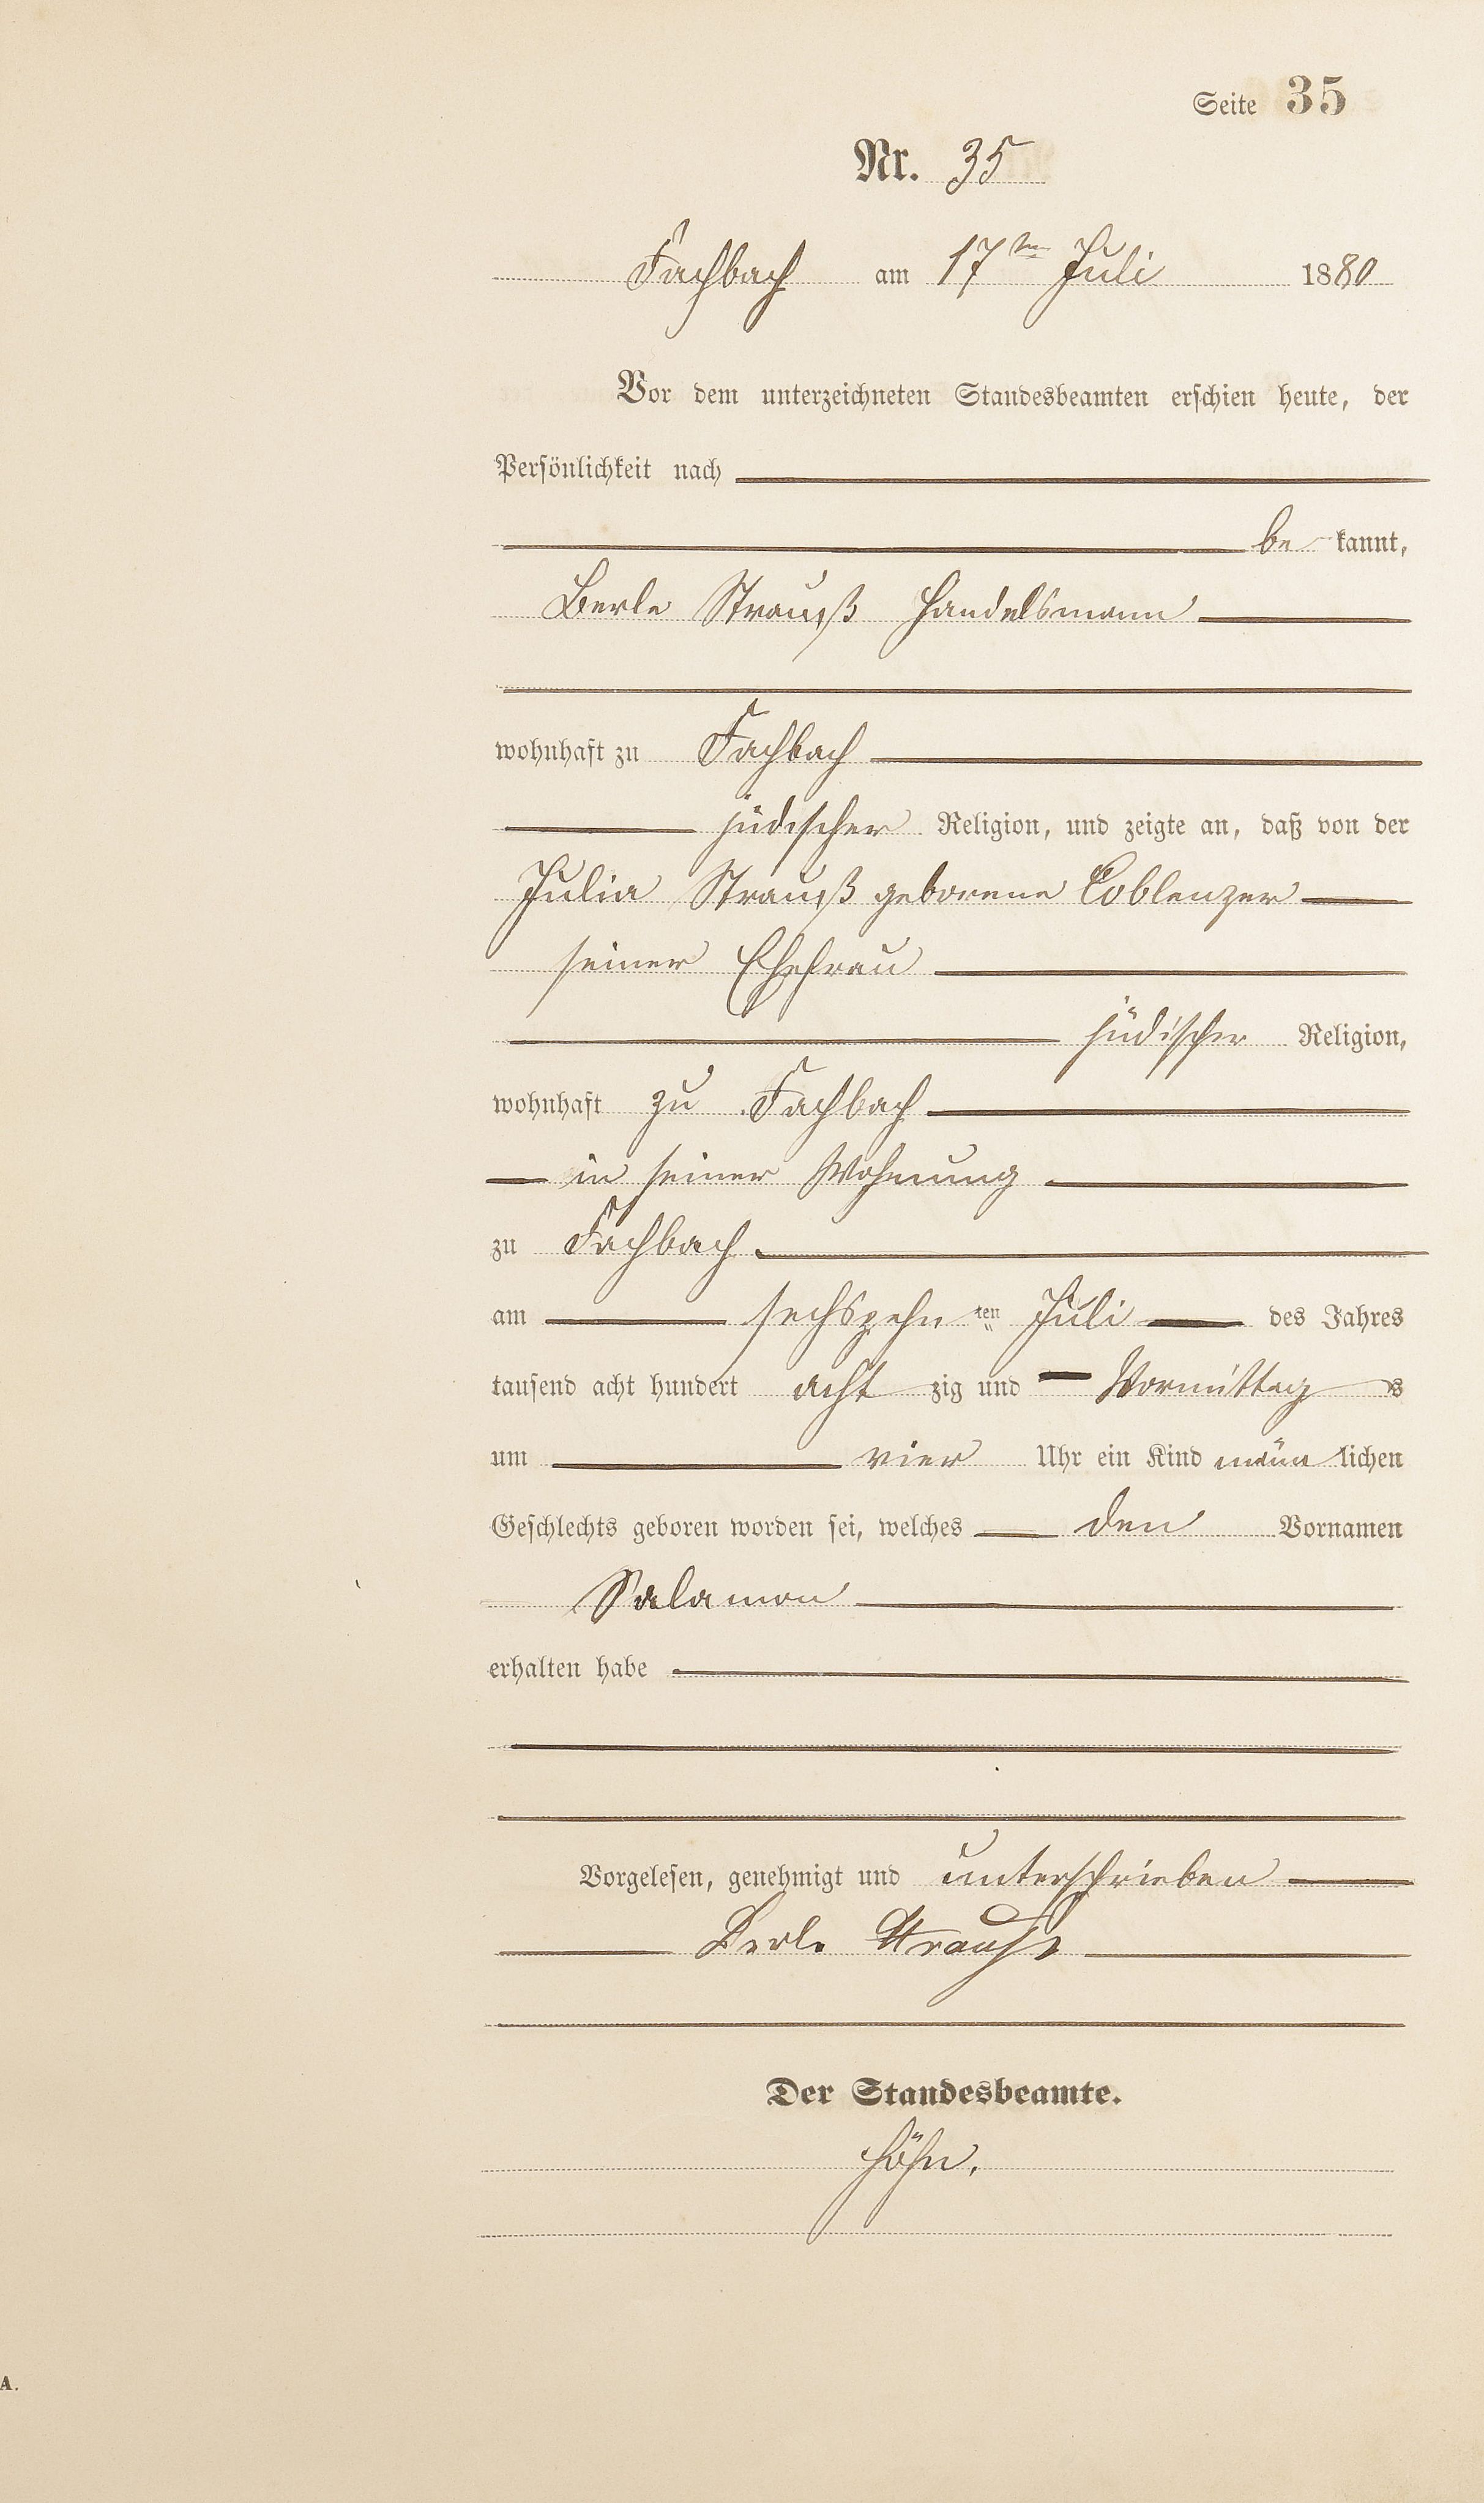 Seite 35
Nr. 35
Fachbach am 17ten Juli 1880
Vor dem unterzeichneten Standesbeamten erschien heute, der
Persönlichkeit nach
bekannt,
Berle Strauß Handelsmann
wohnhaft zu Fachbach
jüdischer Religion, und zeigte an, daß von der
Julia Strauß geborene Coblenzer
seiner Ehefrau
jüdischer Religion,
wohnhaft zu Fachbach
in seiner Wohnung
zu Fachbach
am sechszehnten Juli des Jahres
tausend acht hundert achtzig und Vormittags
um vier Uhr ein Kind männlichen
Geschlechts geboren worden sei, welches den Vornamen
Salamon
erhalten habe
Vorgelesen, genehmigt und unterschrieben
Berle Strauß
Der Standesbeamte.
Höhn.
A.